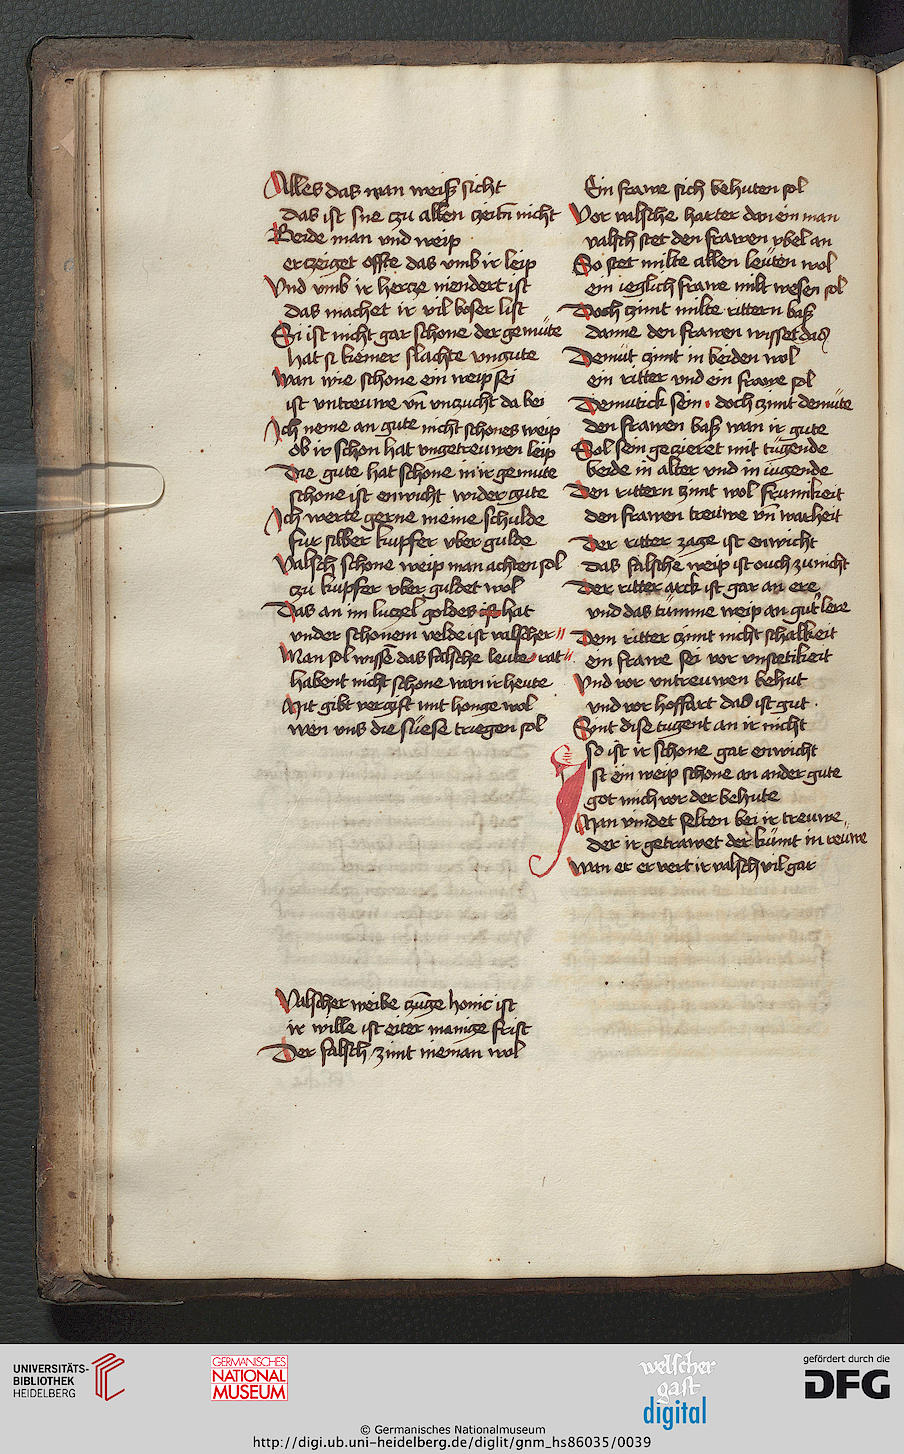 Alles das wan weiß sicht
das ist sne czu allen zeitn nicht
Beide man vnd weip
er czeiget offte das vmb ir leip
Vnd vmb ir hercze niendert ist
das machet ir vil boser list
Si ist nicht gar schone der gemüte
hat si kiemer slachte vngute
Wan wie schone ein weip sei
ist vntreuwe vn̄ vnzucht da bei
Ich neme an gute nicht schones weip
ob ir schon hat vngetreuwen leip
Die gute hat schone in ir gemute
schone ist enwicht wider gute
Ich werte gerne meine schulde
fur silber kupfer vber gulde
Valsch schone weip man achten sol
czu kupfer vber guldet wol
Das an im luczel goldes hat
vnder schonem velde ist valscher
Man sol wissē das falsche leute rat
habent nicht schone wan ir heute
Mit gibt vergift mit honge wol
wen vns die süese triegen sol
Valscher weibe czūge honic ist
ir wille ist eiter manige frist
Der falsch zimt nieman wol
Ein frawe sich behuten sol
Vor valsche harter dan ein man
valsch stet den frawen vbel an
So stet milte allen leüten wol
ein ieglich frawe milt wesen sol
Doch zimt milte rittern baß
danne den frawen wisset das
Demüt zimt in beiden wol
ein ritter vnd ein frawe sol
Demutick sein · doch czimt demüte
den frawen baß wan ir gute
Sol sein gezieret mit tügende
beide in alter vnd in iugende
Den rittern zimt wol frumikeit
den frawen treüwe vn̄ warheit
Der ritter zage ist enwicht
das falsche weip ist ouch zu nicht
Der ritter arck ist gar an ere
vnd das tümme weip an gut lere
Dem ritter zimt nicht schalkeit
ein frawe sei vor vnstetikeit
Vnd vor vntreuwen behut
vnd vor hoffart das ist gut ·
Sint dise tugent an ir nicht
so ist ir schone gar enwicht
Ist ein weip schone an ander gute
got mich vor der behute
Man vindet selten bei ir treuwe
der ir getrawet der kümt in reuwe
Wan er erwert ir valsch vil gar
UNIVERSITÄTS-
BIBLIOTHEK
HEIDELBERG
GERMANISCHES
NATIONAL
MUSEUM
welscher
gast
digital
gefördert durch die
DFG
© Germanisches Nationalmuseum
http://digi.ub.uni-heidelberg.de/diglit/gnm_hs86035/0039